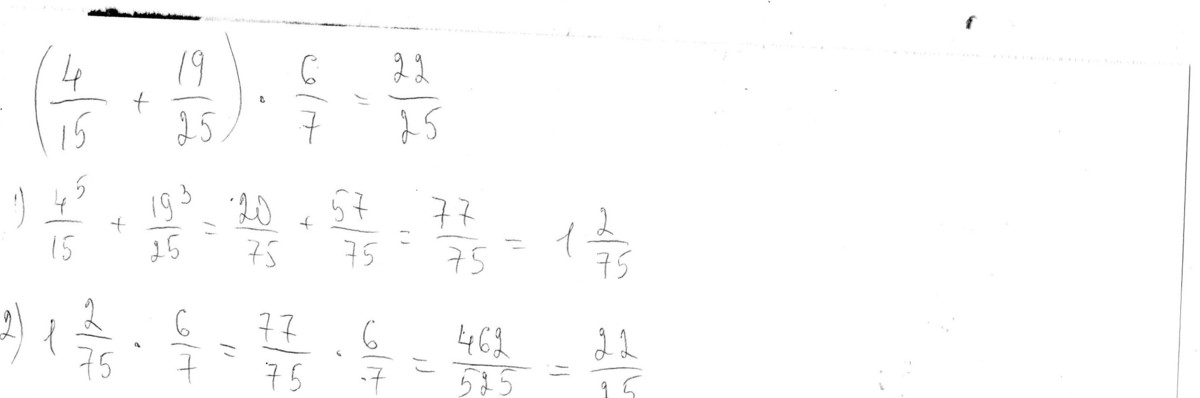 (4/15 + 19/25) · 6/7 = 22/25
1) 4⁵/15 + 19³/25 = 20/75 + 57/75 = 77/75 = 1 2/75
2) 1 2/75 · 6/7 = 77/75 · 6/7 = 462/525 = 22/25